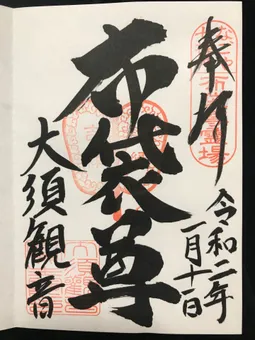 奉拝
令和二年
一月十一日
布袋尊
大須観音